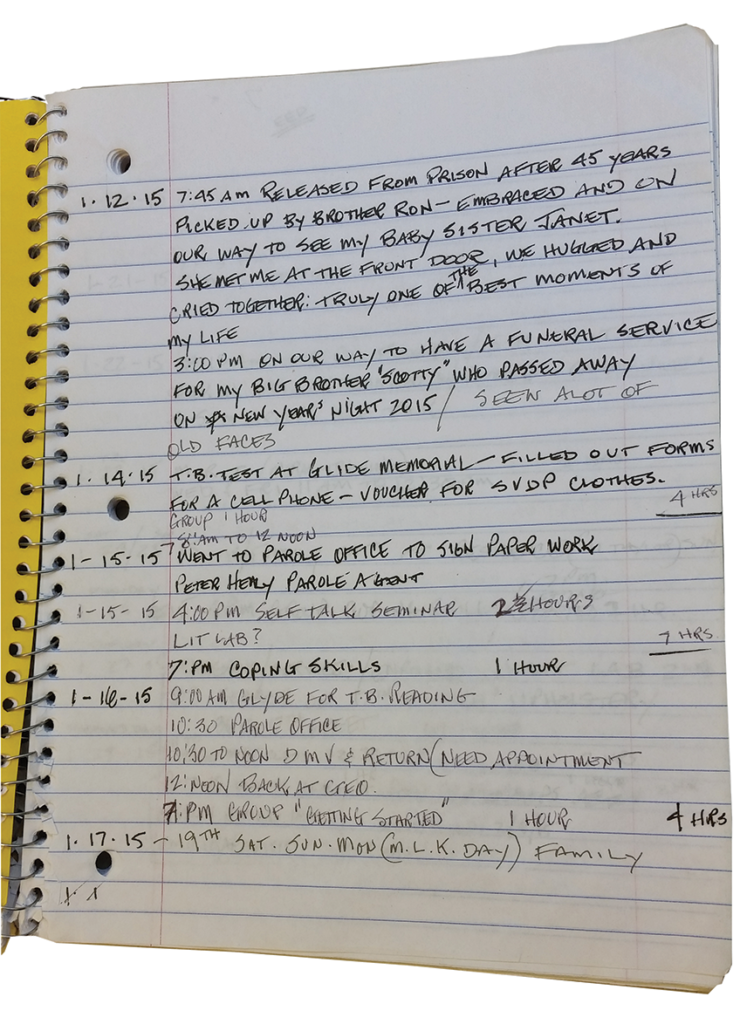 1·12·15 7:45 AM RELEASED FROM PRISON AFTER 45 YEARS
PICKED UP BY BROTHER RON – EMBRACED AND ON
OUR WAY TO SEE MY BABY SISTER JANET.
SHE MET ME AT THE FRONT DOOR, WE HUGGED AND
CRIED TOGETHER: TRULY ONE OF THE BEST MOMENTS OF
MY LIFE
3:00 PM ON OUR WAY TO HAVE A FUNERAL SERVICE
FOR MY BIG BROTHER "SCOTTY" WHO PASSED AWAY
ON NEW YEAR'S NIGHT 2015 / SEEN ALOT OF
OLD FACES
1·14·15 T.B. TEST AT GLIDE MEMORIAL – FILLED OUT FORMS
FOR A CELL PHONE – VOUCHER FOR SVDP CLOTHES. 4 HRS
GROUP 1 HOUR
8:AM TO 12 NOON
1-15-15 WENT TO PAROLE OFFICE TO SIGN PAPER WORK
PETER HENLY PAROLE AGENT
1-15-15 4:00 PM SELF TALK SEMINAR 2½ HOURS
LIT LAB? 7 HRS
7:PM COPING SKILLS 1 HOUR
1-16-15 9:00 AM GLYDE FOR T.B. READING
10:30 PAROLE OFFICE
10:30 TO NOON DMV & RETURN (NEED APPOINTMENT
12:NOON BACK AT GEO.
7:PM GROUP "GETTING STARTED" 1 HOUR 4 HRS
1·17·15 – 19TH SAT. SUN. MON (M.L.K. DAY) FAMILY